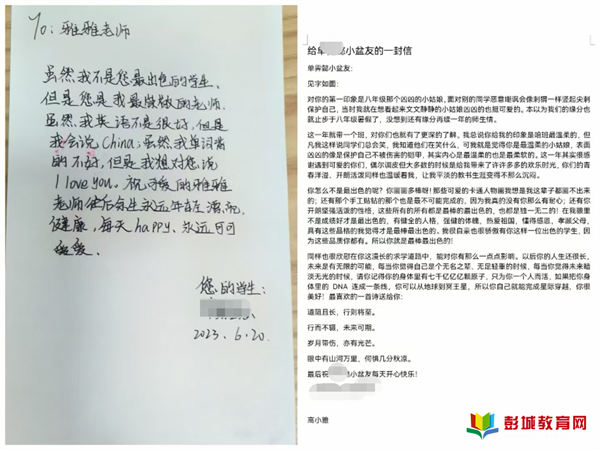 To: 雅雅老师
虽然我不是您最出色的学生，
但是您是我最骄傲的老师。
虽然我英语不是很好，但是
我会说 China；虽然我单词背
的不好，但是我想对您说
I love you。祝可爱的雅雅
老师往后余生永远年轻漂亮，
健康，每天happy、永远可可
爱爱。
您的学生：
2023.6.20
给单 懿小盆友的一封信
单霁懿小盆友：
见字如面：
对你的第一印象是八年级那个凶凶的小姑娘，面对别的同学恶意嘲讽会像刺猬一样竖起尖刺
保护自己，当时我就在想看起来文文静静的小姑娘凶凶的也挺可爱。本来以为我们的缘分也
就止步于八年级暑假了，没想到还有缘分再续一年的师生情。
这一年就带一个班，对你们也就有了更深的了解。我总说你给我的印象是咱班最温柔的，但
凡我这样说同学们总会笑，我知道他们在笑什么，可我就是觉得你是最温柔的小姑娘，表面
凶凶的像是保护自己不被伤害的铠甲，其实内心是最温柔的也是最柔软的。这一年其实很感
谢遇到可爱的你们，偶尔调皮但大多数的时候是给我带来了许许多多的欢乐时光，你们的青
春洋溢、开朗活泼同样也温暖着我，让我平淡的教书生涯变得不那么沉闷。
你怎么不是最出色的呢？你画画多棒呀！那些可爱的卡通人物画我想是我这辈子都画不出来
的；还有那个手工贴钻的那个也是最不可能完成的，因为我真的没有你那么有耐心；还有你
开朗坚强活泼的性格，这些所有的所有都是最棒的最出色的，也都是独一无二的！在我眼里
不是成绩好才是最出色的，有健全的人格、强健的体魄、热爱祖国、懂得感恩、孝顺父母，
具有这些品格的我觉得才是最棒最出色的。我很自豪也很骄傲有你这样一位出色的学生，因
为这些品质你都有。所以你就是最棒最出色的！
同样也很欣慰在你这漫长的求学道路中，能对你有那么一点点影响。以后你的人生还很长，
未来是有无限的可能，每当你觉得自己是个无名之辈、无足轻重的时候，每当你觉得未来暗
淡无光的时候，请你记得你的身体里有七千亿亿亿颗原子，只为你一个人而活，如果把你身
体里的 DNA 连成一条线，你可以从地球到冥王星，所以你自己就能完成星际穿越，你很
美好！最喜欢的一首诗送给你：
道阻且长，行则将至。
行而不辍，未来可期。
岁月带伤，亦有光芒。
眼中有山河万里，何惧几分秋凉。
最后祝 懿小盆友每天开心快乐！
高小雅
彭城教育网